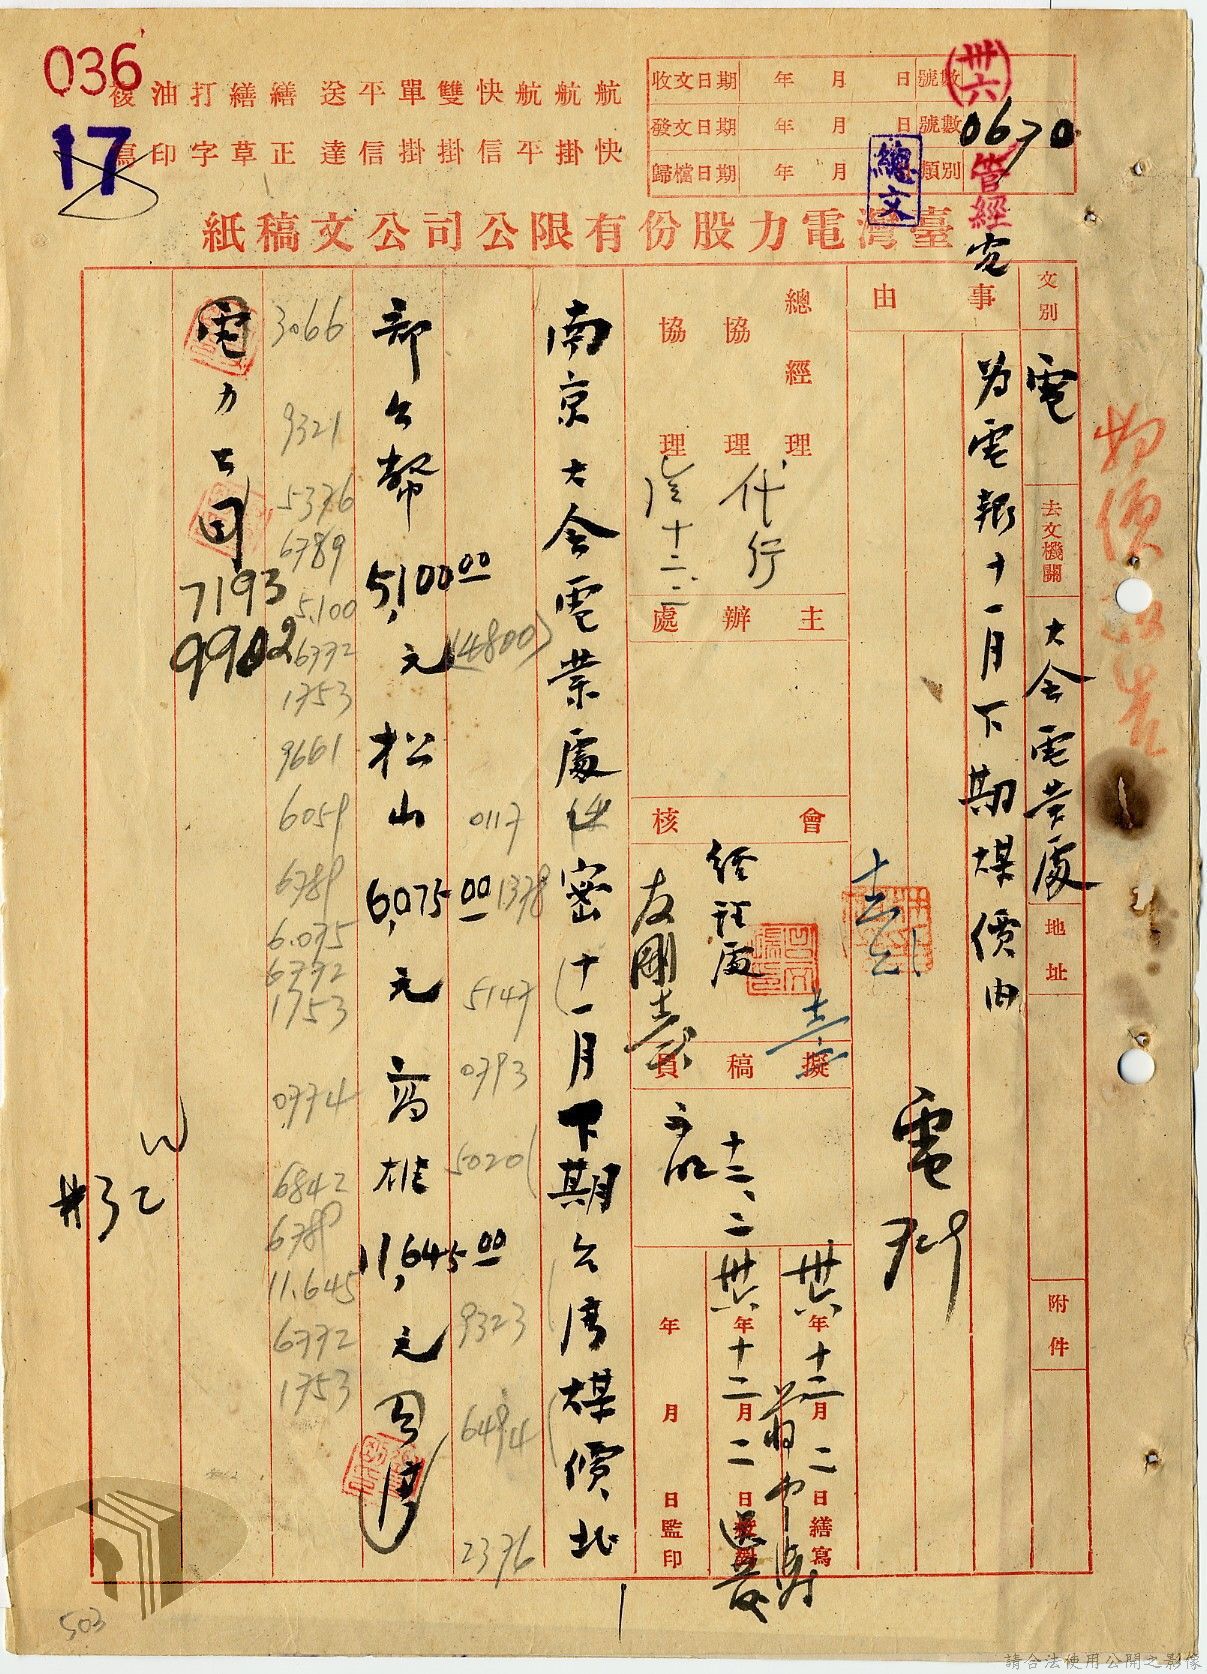 036
17
航快 航掛 航平 快信 雙掛 單掛 平信 送達 繕正 繕草 打字 油印
收文日期 年 月 日 號數
發文日期 年 月 日 號數
歸檔日期 年 月 類別
卅六
0670
管經
總文
臺灣電力股份有限公司公文稿紙
文別 電
去文機關 大会電業處
地址
附件
事由
為電報十一月下期煤價由
電稿
總經理
協理 代行
協理
主辦處
會核
經理處
擬稿員
十二、二
卅六年十二月二日繕寫
卅六年十二月二日
年 月 日監印
南京大会電業處 密十一月下期台湾煤價北
0117
1378
5147
0793
5020
9323
6494
2376
(4800)
部台幣5,100.00元松山6,075.00元高雄11,645.00元
3066
9321
5376
6789
5.100
6772
1753
9661
6059
6789
6.075
6772
1753
0774
6842
6789
11.645
6772
1753
電力公司
7193
9902
503
請合法使用公開之影像